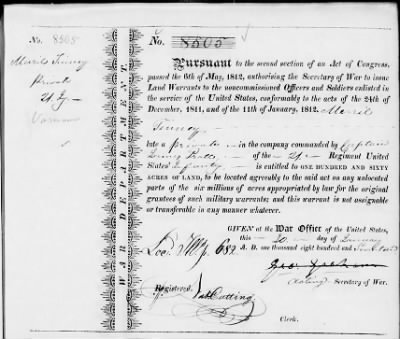 No. 8505
Private
No. 8505
PURSUANT to the second section of an Act of Congress,
passed the 6th of May, 1812, authorising the Secretary of War to issue
Land Warrants to the noncommissioned Officers and Soldiers enlisted
in the service of the United States, conformably to the acts of the 24th of
December, 1811, and of the 11th of January, 1812.
late a private in the company commanded by Captain
of the Regiment United
States Infantry is entitled to ONE HUNDRED AND SIXTY
ACRES OF LAND, to be located agreeably to the said act on any unlocated
part of the six millions of acres appropriated by law for the original
grantees of such military warrants; and this warrant is not assignable
or transferable in any manner whatever.
GIVEN at the War Office of the United States,
this 20 day of January
A. D. one thousand eight hundred and
Acting Secretary of War.
Registered,
Nat Cutting
Clerk.
WAR DEPARTMENT.